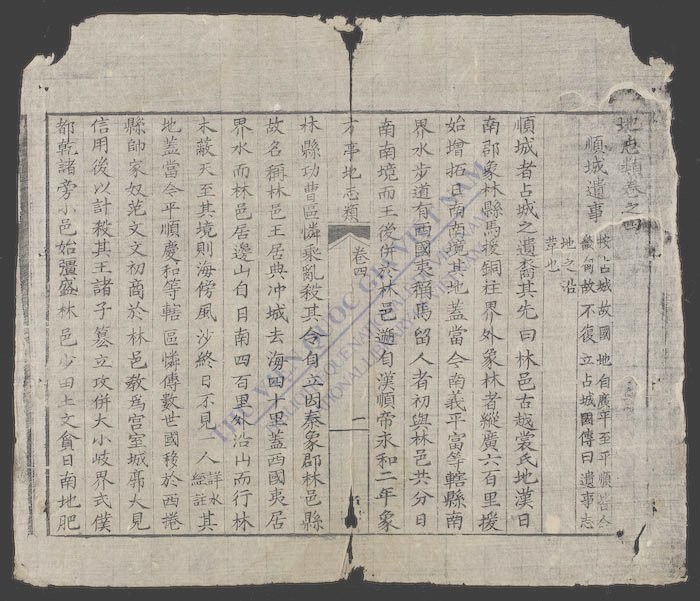 地志類卷之四
順城遺事
按占城故國地自廣平至平順皆今
故不復立占城國傳曰遺事志
地之沿
革也
順城者占城之遺裔其先曰林邑古越裳氏地漢日
南郡象林縣馬援銅柱界外象林者縱廣六百里援
始增拓日南南境其地蓋當今南義平富等轄縣南
界水步道有西國夷稱馬留人者初與林邑共分日
南南境而王後併於林邑遡自漢順帝永和二年象
方亭地志類
卷四
一
林縣功曹區憐乘亂殺其令自立因秦象郡林邑縣
故名稱林邑王居典沖城去海四十里蓋西國夷居
界水而林邑居邊山自日南四百里外沿山而行林
木蔽天至其境則海傍風沙終日不見一人詳水經註其
地蓋當今平順慶和等轄區憐傳數世國移於西捲
縣帥家奴范文文初商於林邑教為宮室城郭大見
信用後以計殺其王諸子篡立攻併大小岐界式僕
都乾諸旁小邑始彊盛林邑少田土文貪日南地肥
THƯ VIỆN QUỐC GIA VIỆT NAM